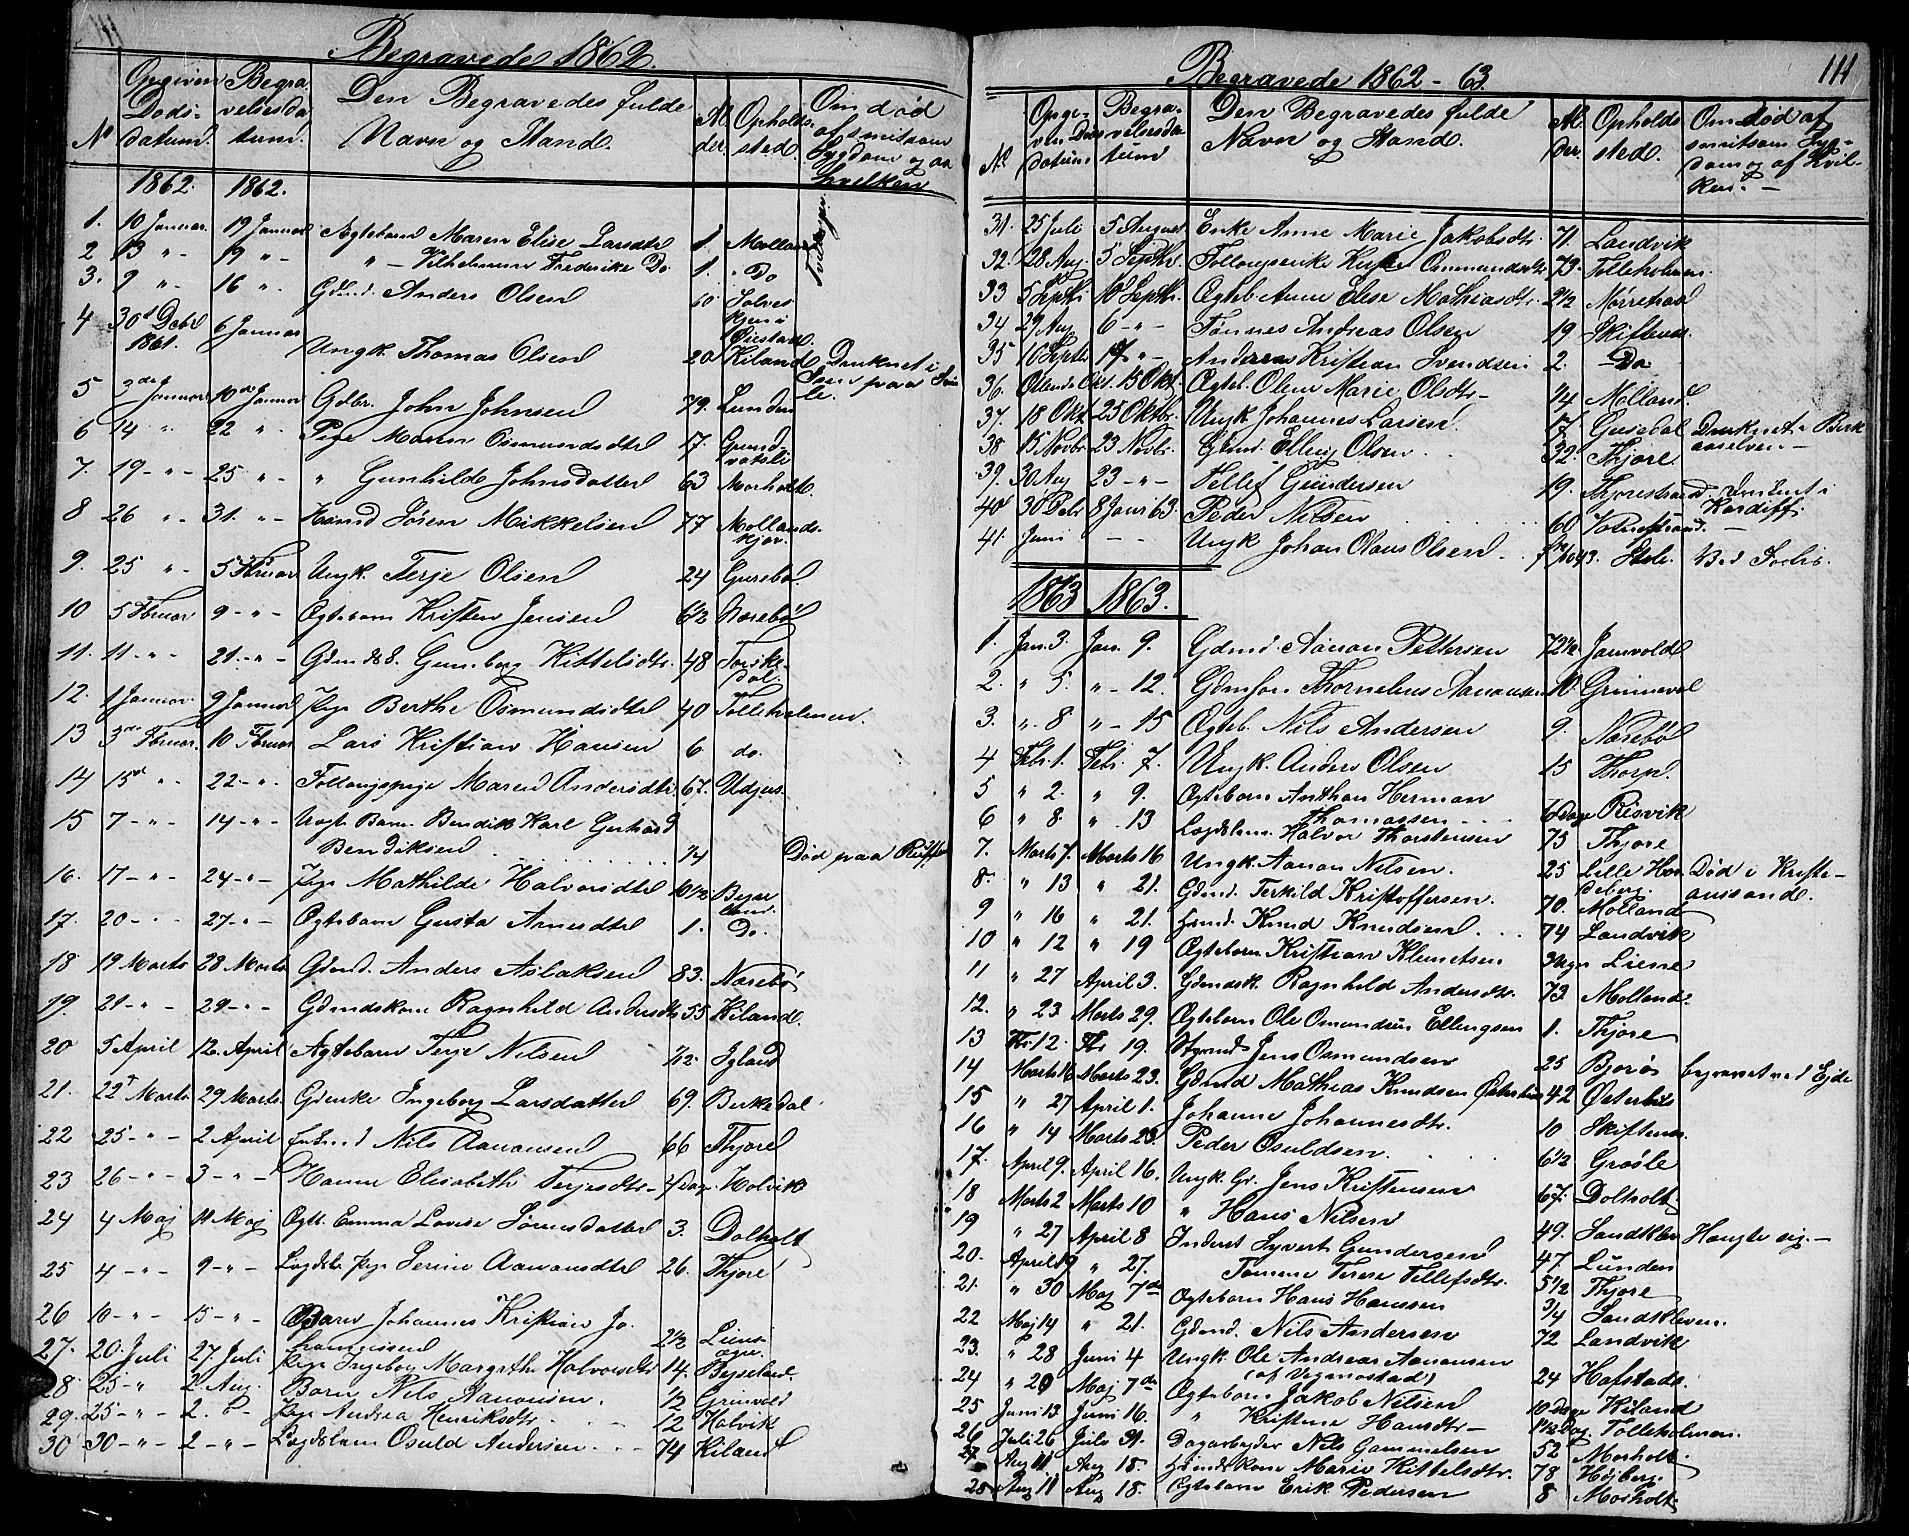 Begravede 1862.
No
Opgiven Døds-datum.
Begravelsesdatum.
Den Begravedes fulde Navn og Stand.
Alder.
Opholdssted.
Om død af smitsom Sygdom og af hvilken
1862. 1862.
1. 10 Januar. 19 Januar Ægtebarn Maren Elise Larsdtr 1. Molland
2 13 " - 19 " - " - Vilhelmine Frederike Do 1. Do
3. 9 " - 16 " - Gdmd. Anders Olsen 60 Solves Øiestad.
4 30 Decbr 1861. 6 Januar Ungk. Thomas Olsen 20 Kiland Druknet i
5 3de Januar 10de Januar Gdbr. John Johnsen 79. Lunden
6 14 " 22 " - Pige Maren Osmundsdtr 17. Grundvatsli
7. 19 - " - 25 " - " Gunhilde Johnsdatter 63 Morholt.
8 26 " - 31. " - Hsmd Søren Mikkelsen 77 Mollandskjær.
9. 25 " - 5 Februar Ungk. Terje Olsen 24 Gusebøl
10 5 Februar 9 - " - Ægtebarn Kristen Jensen 6 1/2 Narebø
11. 11 - " - 21 - " - Gdmds E. Gunborg Kittelsdtr. 48 Torskedal.
12. 1 Januar. 9 Januar Pige Berthe Osmundsdtr 40 Tolleholmen.
13 3de Februar. 10 Februar Lars Kristian Hansen 6 do.
14 15de " - 22 - " - Follougspige Maren Andersdtr. 67. Udjus.
15 7 - " - 14 - " - Uægte Barn Bendik Karl Gerhard
Bendiksen 1/4 Død paa
16. 17 - " - 24 - " - Pige Mathilde Halvorsdtr 10 1/2 Bejseland.
17. 20 - " - 27 - " - Ægtebarn Gusta Arnesdtr 1. Do.
18 19 Marts 28 Marts Gdmd. Anders Aslaksen 83. Narebø
19. 21 - " - 29 - " - Gdmdskone Ragnhild Andersdtr 55 Kiland.
20 5 April 12. April Ægtebarn Terje Nilsen 1/12. Igland
21. 22 Marts 29 Marts Gdenke Ingeborg Larsdatter 69. Berkedal
22 25 - " - 2 April Nils Aanonsen 66 Thjore
23 26 - " - 3 - " - Hanne Elisabeth Terjesdtr - 4 Dage Holvik
24 4 Maj 11 Maj Ægt. Emma Lovise Sørensdatter 3. Dolholt
25 4 - " - 9 - " - Lægdsl. Pige Serine Aanonsdtr 26. Thjore
26 10 - " - 15 - " - Barn Johannes Kristian Jo. 2 1/2
27. 20. Juli 27. Juli Pige Ingeborg Margrethe Halvorsdtr 14. Bejseland.
28 25 - " 2 Aug. Barn Nils Aanonsen. 1/2 Grinvold
29. 25 - " - 2. - Pige Andrea Henriksdtr 12 Holvik
30 30 - " - 2 - " - Lægdslem Osuld Andersen 74 Kiland
Begravede 1862 - 63. 111
No
Opgiven Dødsdatum
Begravelsesdatum
Den Begravedes fulde Navn og Stand.
Alder.
Opholdssted.
Om død af smitsom Sygdom og af hvilken. -
31. 25 Juli 5 August Enke Anne Marie Jakobsdtr. 71. Landvik
32. 28 Aug. 5 Septbr Follougsenke Osmundsdtr 73. Tolleholmen.
33 5 Septbr 10 Septbr. Ægteb. Anne Elise Mathiasdtr. 2 1/2 Nørrestad
34 29 Aug 6 - " - Tønnes Andreas Olsen 19 Skiftenes.
35 16 Septbr 17 " - Andreas Kristian Svendsen 2. Do
36. Okt. 15 Okt. Ægteb. Oline Marie Olsdtr - 1/4 Molland.
37. 18 Okt. 25 Oktbr. Ungk. Johannes Larsen 17 Gusebøl Druknet i Birk
38 15 Novbr 23 Novbr. Gdmd. Elling Olsen 32. Thjore.
39. 30 Aug 23 - " - Tellef Gundersen 19. Thjorestrand. Druknet i Kardiff.
40 30 Debr 8 Janr 63. Peder Nilsen 60
41. Juni - - Ungk Johan Olaus Olsen - 43.
1863 1863.
1. Jan. 3. Jan. 9. Gdmd. Aanon Pettersen 72 1/2 Jomvold
2. " 5. " - 12. Gdmsøn Thornelius Aanonsen 10. Grinnevol
3. " 8 " - 15 Ægteb. Nils Andersen 9. Narebø
4 Febr. 1. Febr. 7. Ungk. Anders Olsen 15 Thorp.
5 " 2. " 9. Ægtebarn Anthon Herman
Thomassen 6 Dage Risvik
6 " 8. " 13 Lægdslem. Halvor Thorstensen 73 Thjore
7. Marts 7. Marts 16 Ungk. Aanon Nilsen. 25 Lille Død i Kristiansand.
8. " 13 " 21. Gdmd. Terkild Kristoffersen. 70. Molland
9 " 16 " 21. Knud Knudsen 74 Landvik
10 " 12 " 19 Ægtebarn Kristian Klemetsen 3 Uger Liene
11 " 27 April 3. Gdmdsk. Ragnhild Andersdtr. 73 Molland
12. " 23 Marts 29. Ægtebarn Ole Osmundsen Ellingsen 1. Thjore
13 Fbr. 12. Fbr 19. Styrmd. Jens Osmundsen 25 Bjorøs begravet ved Ejde
14 Marts 16 Marts 23. Gdmd Mathias Knudsen Østerhus 42 Østerhus
15 " 27 April 1. Johanne Johannesdtr. 10 Skiftenes.
16 " 14 Marts 23. Peder Osuldsen. 6 1/2 Grosle
17. April 9. April 16. Ungk. Gr. Jens Kristensen 67. Dolholt
18 Marts 2 Marts 10 " Hans Nilsen 49. Sandkler Hængte sig. -
19 " 27 April 8 Inderst Syvert Gundersen 47. Lunden
20. April 19 " 27. Tomine Terese Tellefsdtr. 5 1/2 Thjore
21. " 30 Maj 7de Ægtebarn Hans Hanssen 3/4 Sandkleven.
22 Maj 14 " 21. Gdmd. Nils Andersen 72 Landvik
23. " 28 Juni 4 Ungk. Ole Andreas Aanonsen
(af Vegmostad) 24 Hafstad.
24 " 29 Maj 7de Ægtebarn Jakob Nilsen 10 Dage Kiland
25 Juni 13 Juni 16. " Kristine Hansdtr - 1 1/2 Dag. Tolleholmen.
26 Juli 26 Juli 31. Dagarbejder Nils Gammelsen 52 Morholt.
27 Aug 11 Aug 18. Kone Marie Kittelsdtr. 78 Højberg.
28 Aug 11 Aug 18. Ægtebarn Erik Pedersen 8 Morholt